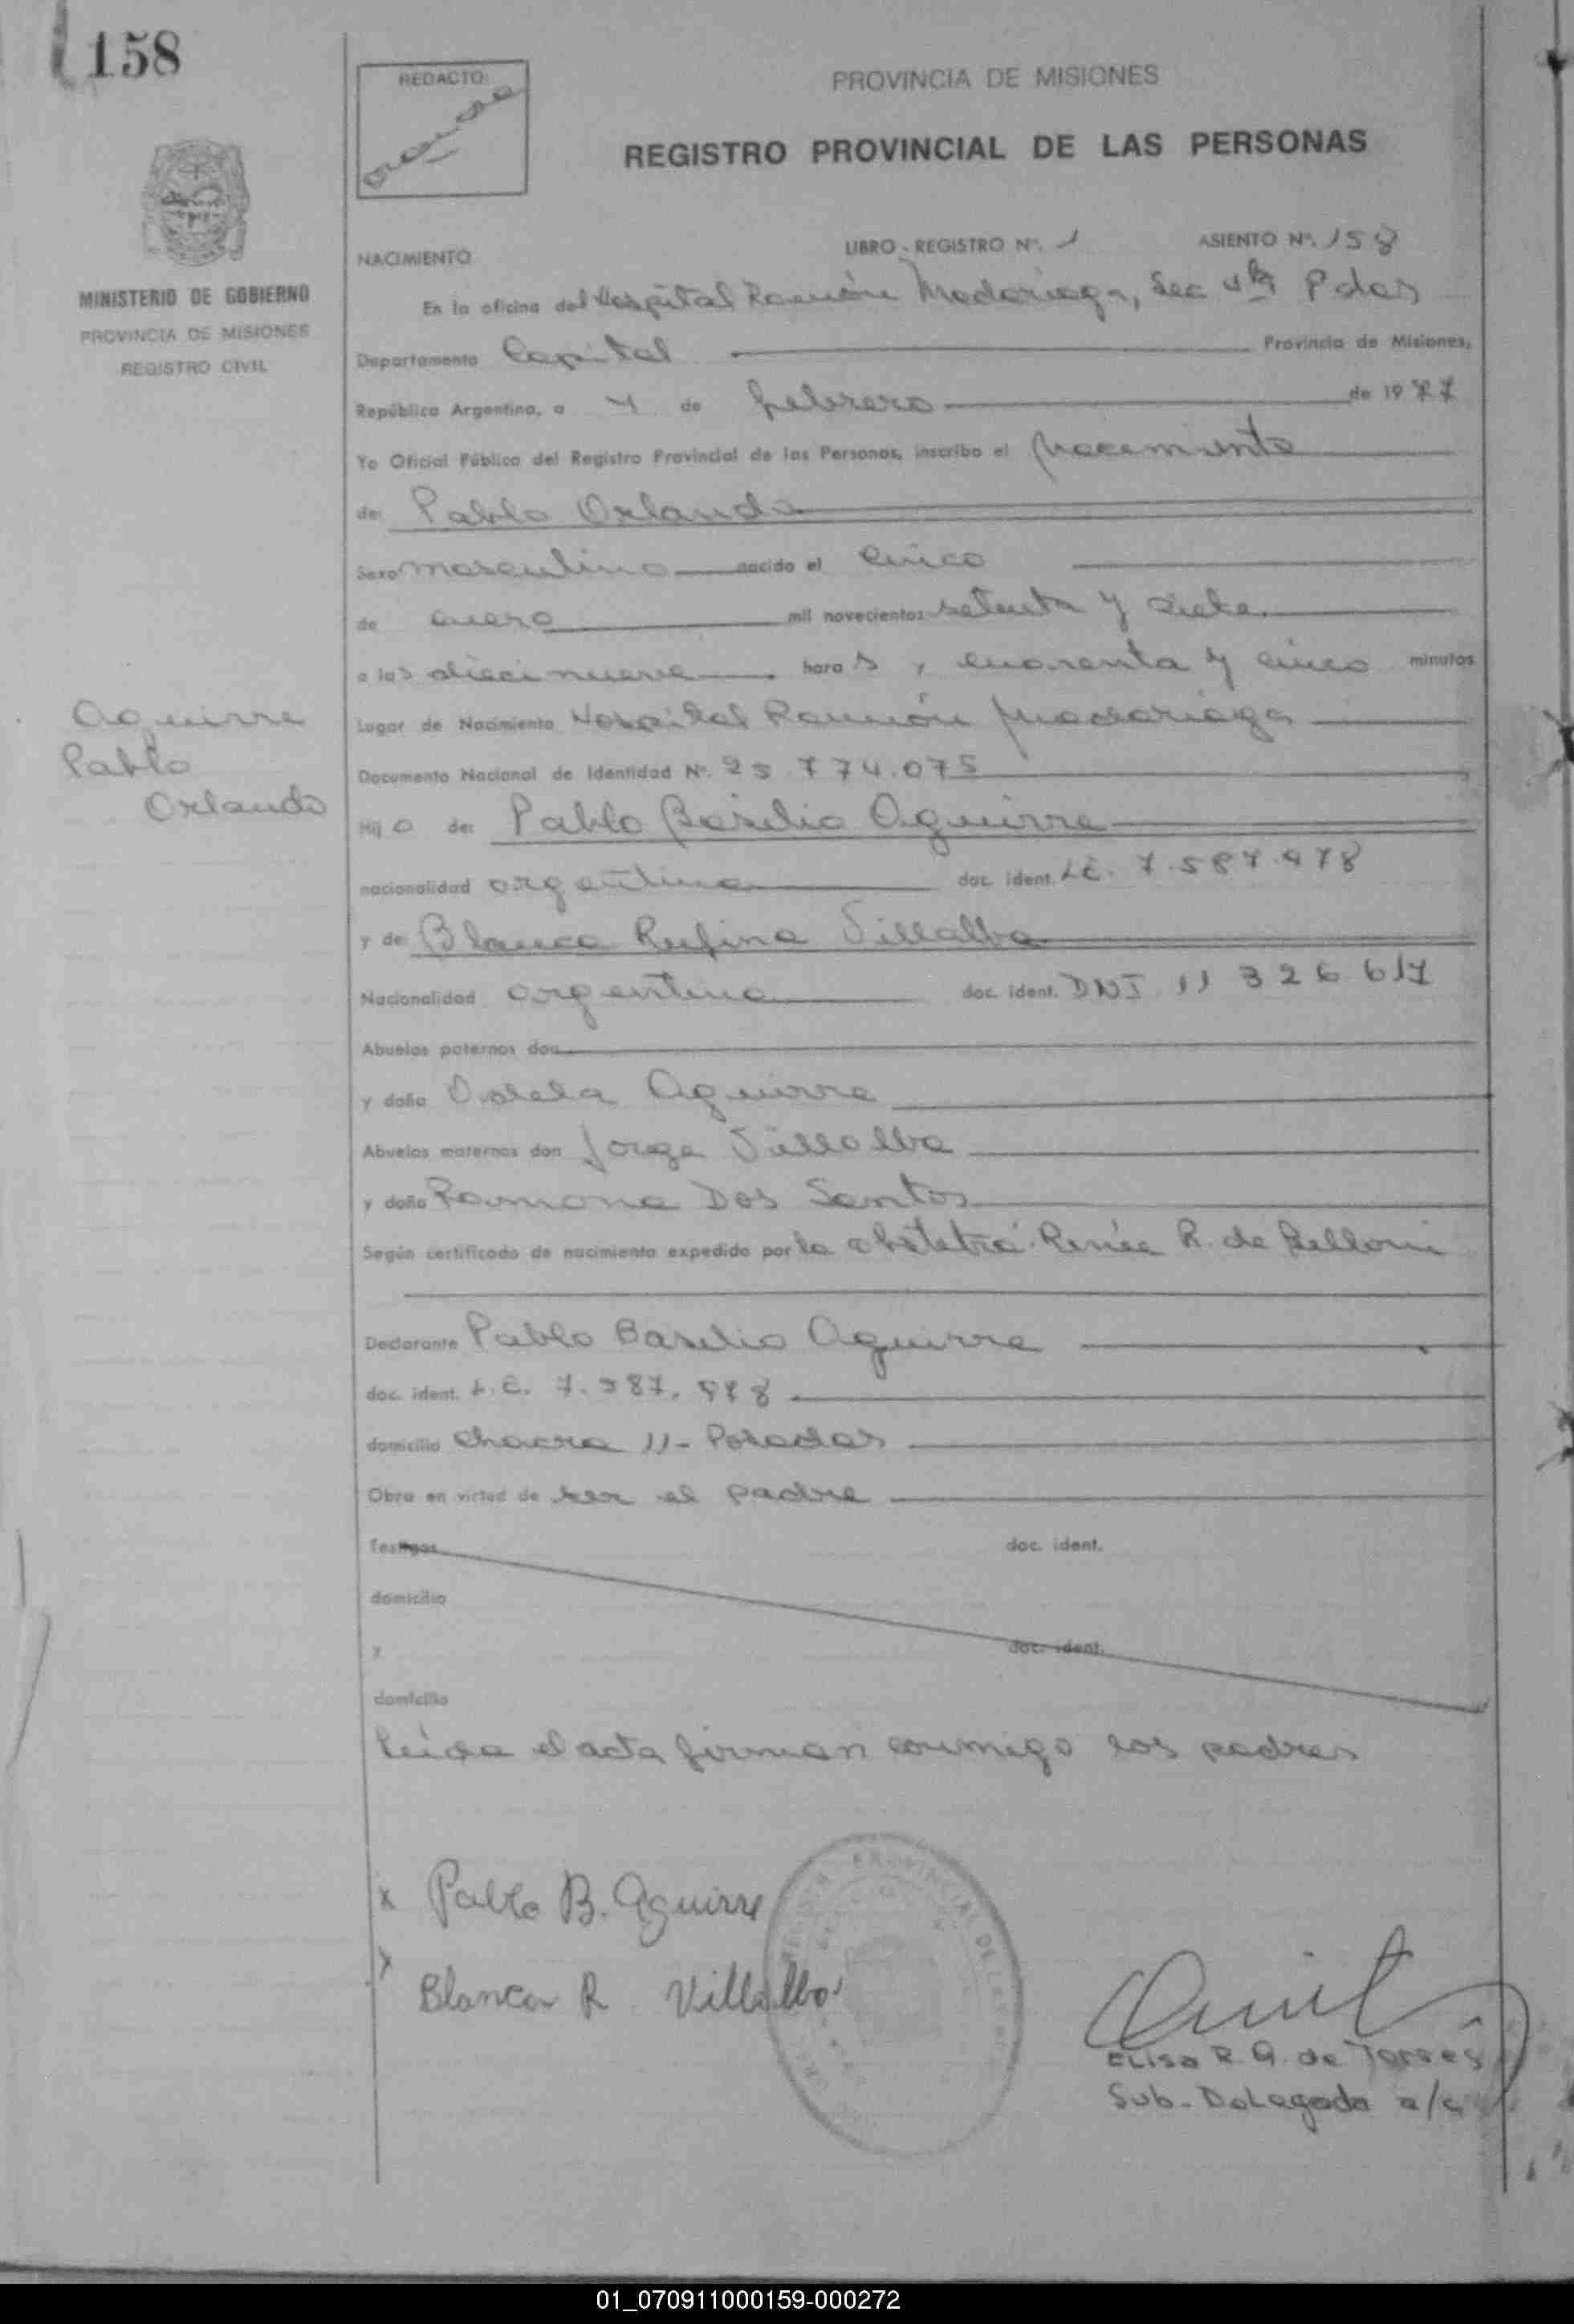 158
REDACTO:
PROVINCIA DE MISIONES
REGISTRO PROVINCIAL DE LAS PERSONAS
MINISTERIO DE GOBIERNO
PROVINCIA DE MISIONES
REGISTRO CIVIL
NACIMIENTO LIBRO - REGISTRO Nº. 1 ASIENTO Nº. 158
En la oficina del Hospital Ramón Madariaga, Sec 4ta Pdas
Departamento Capital Provincia de Misiones,
República Argentina, a 4 de febrero de 1977
Yo Oficial Público del Registro Provincial de las Personas, inscribo el nacimiento
de: Pablo Orlando
Sexo masculino nacido el cinco
de enero mil novecientos setenta y siete
a las diecinueve horas y cuarenta y cinco minutos
Lugar de Nacimiento Hospital Ramón Madariaga
Documento Nacional de Identidad Nº. 25.774.075
Aguirre
Pablo
Orlando
Hijo de: Pablo Basilio Aguirre
nacionalidad argentina doc. ident. LE. 7.587.978
y de Blanca Rufina Villalba
Nacionalidad argentina doc. ident. DNI 11 326 617
Abuelos paternos don
y doña Aguirre
Abuelos maternos don Jorge Villalba
y doña Ramona Dos Santos
Según certificado de nacimiento expedido por la obstetra Renée R. de Belloni
Declarante Pablo Basilio Aguirre
doc. ident. L.E. 7.587.978
domicilio Chacra 11 - Posadas
Obra en virtud de ser el padre
Testigos doc. ident.
domicilio
y doc. ident.
domicilio
Leída el acta firman conmigo los padres
x Pablo B. Aguirre
Blanca R Villalba
Elisa R. G. de Torres
Sub-Delegada a/c
01_070911000159-000272